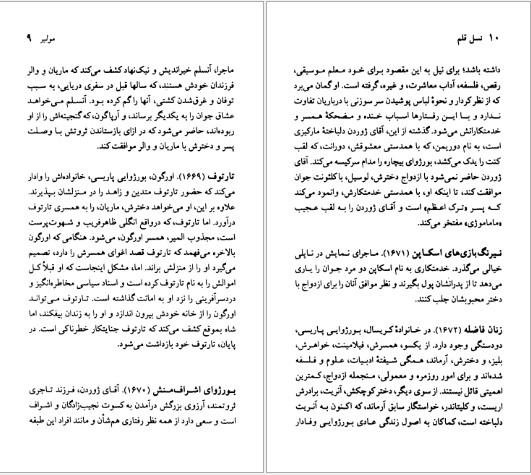 مولیر ۹
ماجرا، آنسلم خیراندیش و نیک‌نهاد کشف می‌کند که ماریان و والر
فرزندان خودش هستند، که سالها قبل در سفری دریایی، به سبب
توفان و غرق‌شدن کشتی، آنها را گم کرده بود. آنسلم می‌خواهد
عشاق جوان را به یکدیگر برساند، و آرپاگون، که گنجینه‌اش را از او
ربوده‌اند، حاضر می‌شود که در ازای بازستاندن ثروتش با وصلت
پسر و دخترش با ماریان و والر موافقت کند.
تارتوف (۱۶۶۹). اورگون، بورژوایی پاریسی، خانواده‌اش را وادار
می‌کند که حضور تارتوف متدین و زاهد را در منزلشان بپذیرند.
علاوه بر این، او می‌خواهد دخترش، ماریان، را به همسری تارتوف
درآورد. اما تارتوف، که درواقع انگلی ظاهرفریب و شهوت‌پرست
است، مجذوب المیر، همسر اورگون، می‌شود. هنگامی که اورگون
بالاخره می‌فهمد که تارتوف قصد اغوای همسرش را دارد، تصمیم
می‌گیرد او را از منزلش براند. اما، مشکل اینجاست که او قبلاً کل
اموالش را به نام تارتوف کرده است و اسناد سیاسی مخاطره‌انگیز و
دردسرآفرینی را نزد او به امانت گذاشته است. تارتوف می‌تواند
اورگون را از خانه خودش بیرون اندازد و او را به زندان بیفکند، اما
شاه بموقع کشف می‌کند که تارتوف جنایتکار خطرناکی است. در
پایان، تارتوف خود بازداشت می‌شود.
بورژوای اشراف‌منش (۱۶۷۰). آقای ژوردن، فرزند تاجری
ثروتمند، آرزوی بزرگش درآمدن به کسوت نجیب‌زادگان و اشراف
است و سعی دارد از همه نظر رفتاری همشأن و مانند افراد این طبقه
۱۰ نسل قلم
داشته باشد؛ برای نیل به این مقصود برای خود معلم موسیقی،
رقص، فلسفه، آداب معاشرت، و غیره، گرفته است. او گمان می‌برد
که از نظر کردار و نحوهٔ لباس پوشیدن سر سوزنی با درباریان تفاوت
ندارد و با این رفتارها اسباب خنده و مضحکهٔ همسر و
خدمتکارانش می‌شود. گذشته از این، آقای ژوردن دلباختهٔ مارکیزی
است، به نام دوریمن، که با همدستی معشوقش، دورانت، که لقب
کنت را یدک می‌کشد، بورژوای بیچاره را مدام سرکیسه می‌کند. آقای
ژوردن حاضر نمی‌شود با ازدواج دخترش، لوسیل، با کلئونت جوان
موافقت کند، تا اینکه او، با همدستی خدمتکارش، وانمود می‌کند
که پسر «ترک اعظم» است و آقای ژوردن را به لقب عجیب
«ماماموژی» مفتخر می‌کند.
نیرنگ‌بازی‌های اسکاپن (۱۶۷۱). ماجرای نمایش در ناپلی
خیالی می‌گذرد. خدمتکاری به نام اسکاپن دو مرد جوان را یاری
می‌دهد تا از پدرانشان پول بگیرند و نظر موافق آنان را برای ازدواج با
دختر محبوبشان جلب کنند.
زنان فاضله (۱۶۷۲). در خانوادهٔ کریسال، بورژوایی پاریسی،
دودستگی وجود دارد. از یکسو، همسرش، فیلامینت، خواهرش،
بلیز، و دخترش، آرماند، همگی شیفتهٔ ادبیات، علوم و فلسفه
شده‌اند و برای امور روزمره و معمولی، منجمله ازدواج، کمترین
اهمیتی قائل نیستند. از سوی دیگر، دختر کوچکش، آنریت، برادرش
اریست، و کلیتاندر، خواستگار سابق آرماند، که اکنون به آنریت
دلباخته است، کماکان به اصول زندگی عادی بورژوایی وفادار